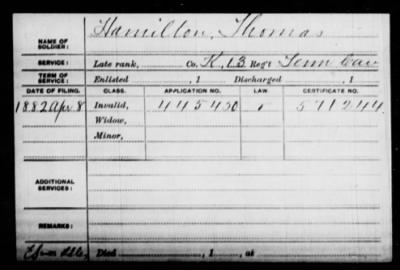 NAME OF SOLDIER: Hamilton, Thomas
SERVICE: Late rank, Co. K, 13 Reg't Tenn Cav
TERM OF SERVICE: Enlisted , 1 Discharged , 1
DATE OF FILING. CLASS. APPLICATION NO. LAW. CERTIFICATE NO.
1882 Apr 8 Invalid, 445450 571244
Widow,
Minor,
ADDITIONAL SERVICES:
REMARKS:
Died , 1 , at